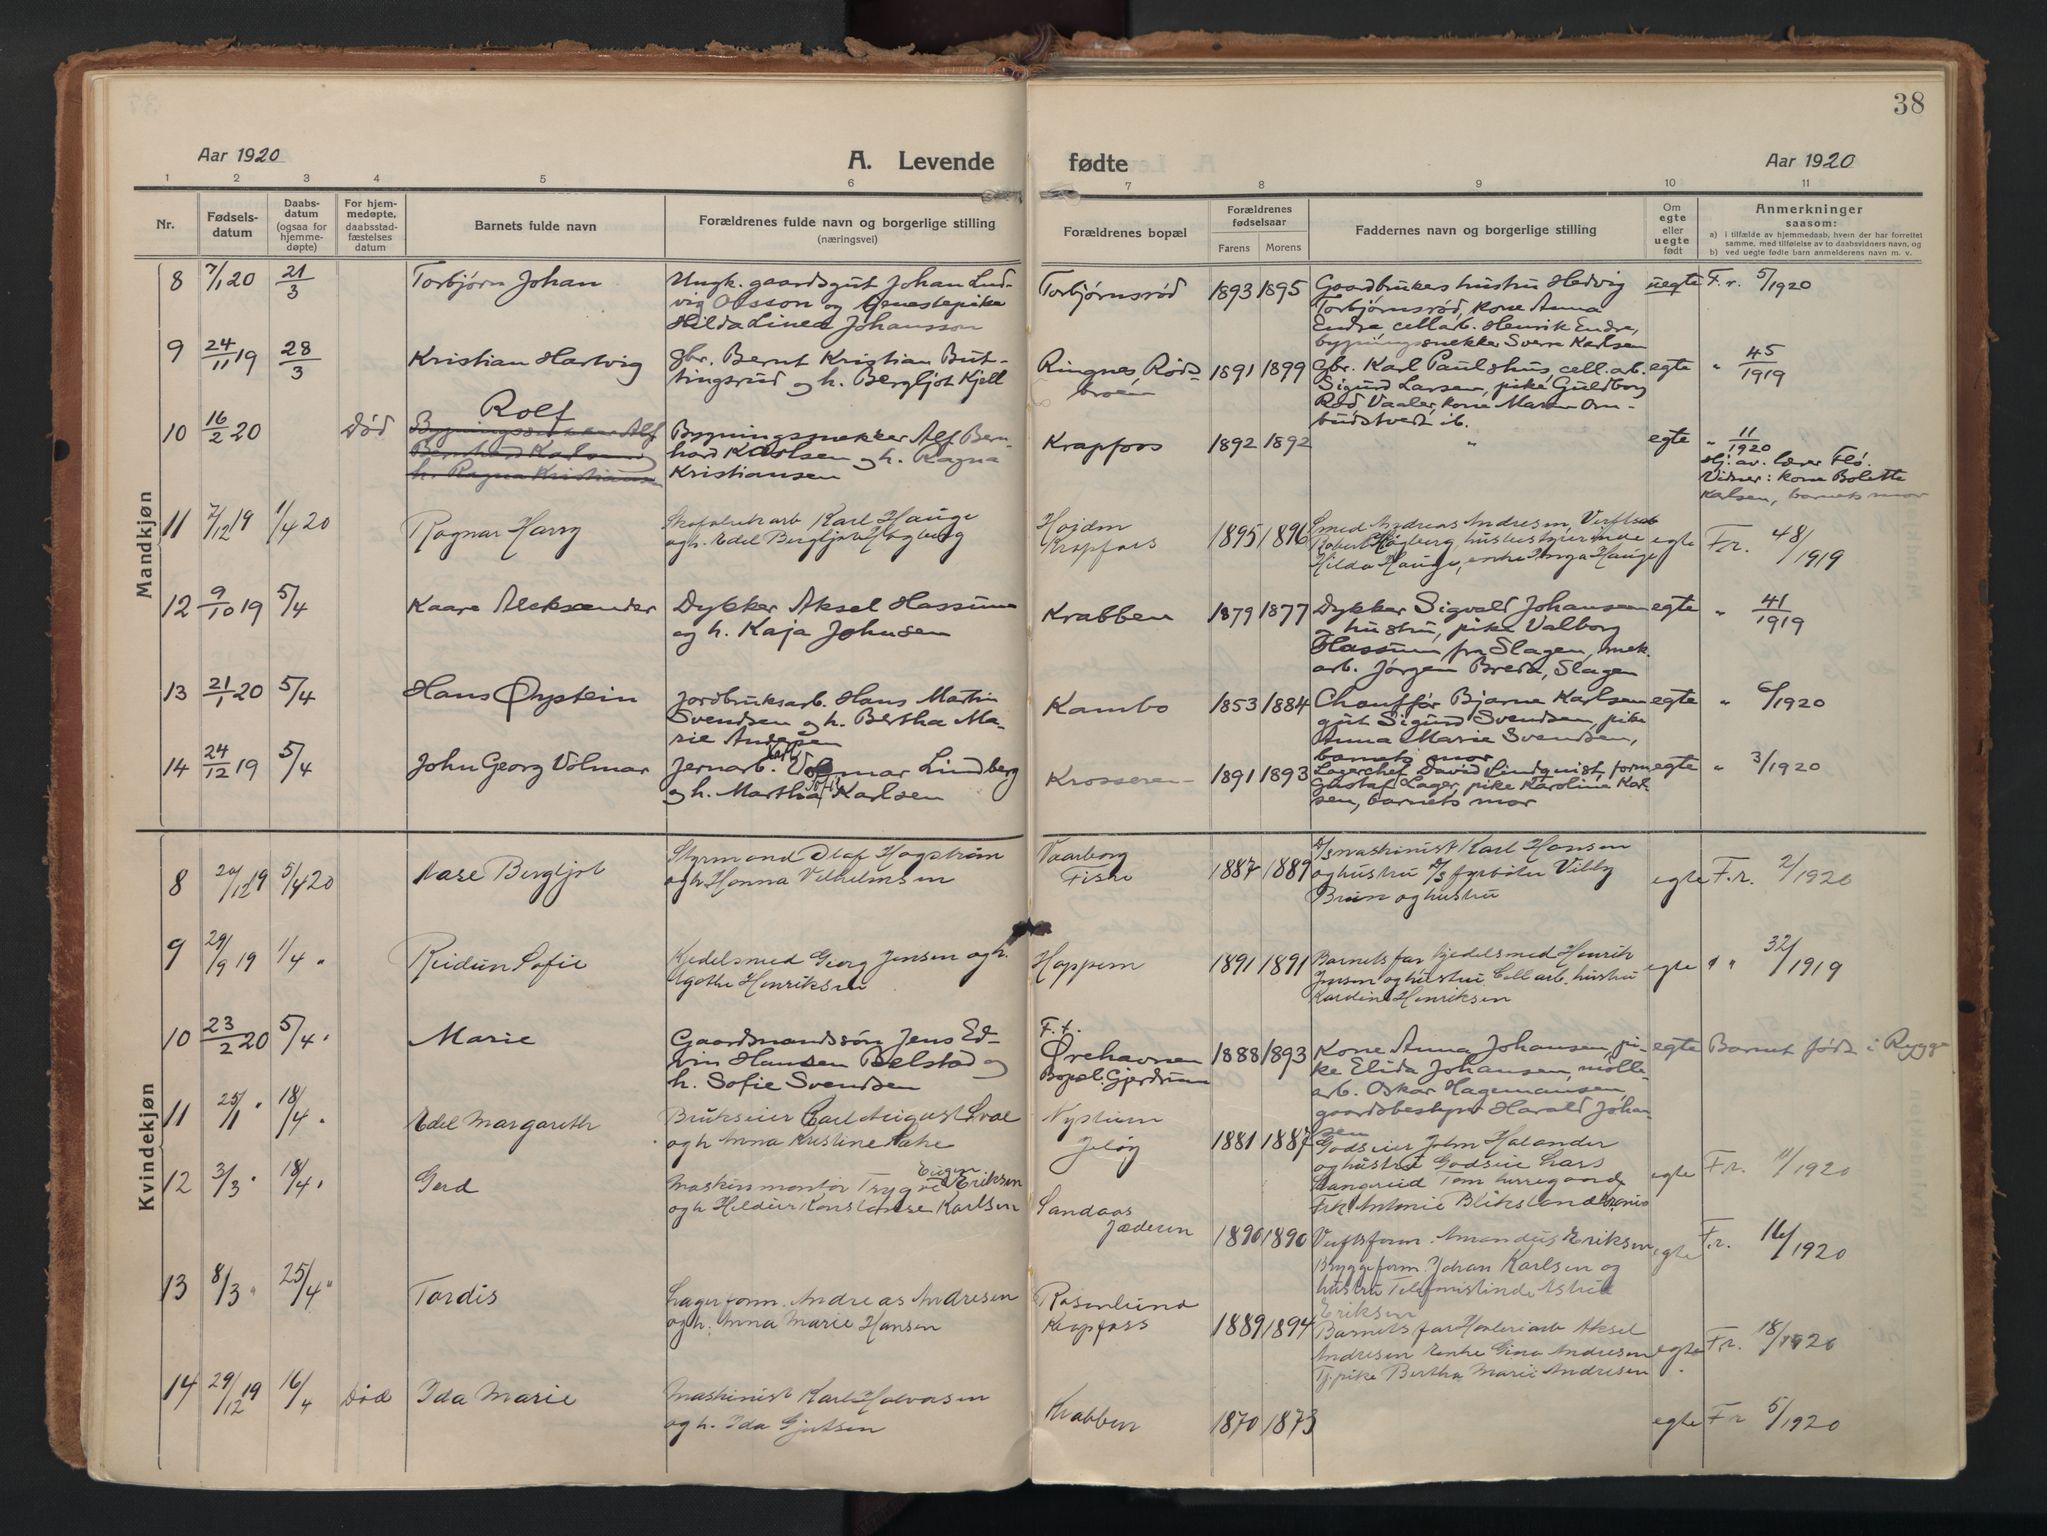 38
Aar 1920
A. Levende fødte
Aar 1920
1 2 3 4 5 6 7 8 9 10 11
Nr.
Fødsels-
datum
Daabs-
datum
(ogsaa for
hjemme-
døpte)
For hjem-
medøpte,
daabsstad-
fæstelses
datum
Barnets fulde navn
Forældrenes fulde navn og borgerlige stilling
(næringsvei)
Forældrenes bopæl
Forældrenes
fødselsaar
Farens Morens
Faddernes navn og borgerlige stilling
Om
egte
eller
uegte
født
Anmerkninger
saasom:
a) i tilfælde av hjemmedaab, hvem der har forrettet
samme, med tilføielse av to daabsvidners navn, og
b) ved uegte fødte barn anmelderens navn m. v.
Mandkjøn
8 7/1 20 21/3 Torbjørn Johan
Ungk. gaardsgut Johan Lud-
vig Olsson og tjenestepike
Hilda Linea Johansson
Torbjørnsrød 1893 1895
Gaardbrukers hustru Hedvig
Torbjørnsrød, kone Anna
Endre, cell.arb. Henrik Endre,
bygningssnekker Sverre Karlsen
uegte F.r. 5/1920
9 24/11 19 28/3 Kristian Hartvig
gbr. Bernt Kristian But-
tingsrud og h. Bergljot Kjell
Ringnes, Røds-
broen 1891 1899
gbr. Karl Paulshus, cell.arb.
Sigurd Larsen, pike Guldborg
Rød Vaaler, kone Maren Om-
budstvedt ib.
egte " 45/1919
10 16/2 20 Død Rolf
Bygningssnekker Alf
Bernhard Karlsen og
h. Ragna Kristiansen
Bygningssnekker Alf Bern-
hard Karlsen og h. Ragna
Kristiansen
Krapfoss 1892 1892 " egte " 11/1920
Hj. av. lærer Flø.
Vidner: kone Bolette
Karlsen, barnets mor
11 7/12 19 1/4 20 Ragnar Harry
Skofabrikarb Karl Hauge
og h. Edel Bergljot Høgberg
Højden
Krapfoss 1895 1896
Smed Andreas Andresen, Verftsarb
Robert Høgberg, husbestyrerinde
Hilda Hauge, enke Inga Hauge
egte F.r. 48/1919
12 9/10 19 5/4 Kaare Aleksander
Dykker Aksel Hassum
og h. Kaja Johnsen
Krabben 1879 1877
Dykker Sigvald Johansen
og hustru, pike Valborg
Hassum fra Slagen, mek.
arb. Jørgen Breda, Slagen
egte " 41/1919
13 21/1 20 5/4 Hans Øystein
Jordbruksarb. Hans Martin
Svendsen og h. Bertha Ma-
rie Andersen
Kambo 1853 1884
Chauffør Bjarne Karlsen
gut Sigurd Svendsen, pike
Anna Marie Svendsen,
barnets mor
egte " 6/1920
14 24/12 19 5/4 John Georg Volmar
Jernarb. Karl Volmar Lindberg
og h. Martha Sofie Karlsen
Krosseren 1891 1893
Lagerchef David Lindquist, form
Gustaf Lager, pike Karoline Karl-
sen, barnets mor
egte " 3/1920
Kvindekjøn
8 20/12 19 5/4 20 Aase Bergljot
Styrmand Olaf Hagstrøm
og h Hanna Vilhelmsen
Vaarborg
Fiske 1887 1889
D/S maskinist Karl Hansen
og hustru D/S fyrbøter Villy
Bruun og hustru
egte F.r. 2/1920
9 29/9 19 1/4 " Reidun Sofie
Kjedelsmed Georg Jensen og h.
Agathe Henriksen
Hoppern 1891 1891
Barnets far kjedelsmed Henrik
Jensen og hustru Cell arb. hustru
Kardine Henriksen
egte " " 32/1919
10 23/2 20 5/4 " Marie
Gaardmandssøn Jens Ed-
vin Hansen Belstad og
h. Sofie Svendsen
F. f.
Ørehavnen
Bopæl: Gjerdrum 1888 1893
Kone Anna Johansen, pi-
ke Elida Johansen, mølle-
arb. Oskar Hagemansen
gaardsbestyrer Harald Johan
sen
egte Barnet født i Rygge
11 25/1 " 18/4 " Edel Margareth
Brukseier Carl August Lvae
og h Anna Kristine Aake
Nystuen
Jeløy 1881 1887
Godseier John Halander
og hustru Godseier Lars
Langerud Tom herregaard
Frk. Antonie Bliksland
egte F.r. 11/1920
12 3/3 " 18/4 " Gerd
Maskinmontør Trygve Eugen Eriksen
og h Hildur Konstanse Karlsen
Sandaas
Jæderen 1890 1890
Verftsform. Amandus Eriksen
Bryggeform. Johan Karlsen og
hustru Telefonistinde Astrid
Eriksen
egte F.r. 16/1920
13 8/3 " 25/4 " Tordis
Lagerform. Andreas Andresen
og h. Anna Marie Hansen
Rosenlund
Krapfoss 1889 1894
Barnets far Høvleriarb Aksel
Andresen Enke Gina Andresen
Tj.pike Bertha Marie Andresen
egte F.r. 18/1920
14 29/12 19 16/4 Død Ida Marie
Maskinist Karl Halvorsen
og h. Ida Gjutsen
Krabben 1870 1873 egte F r 5/1920